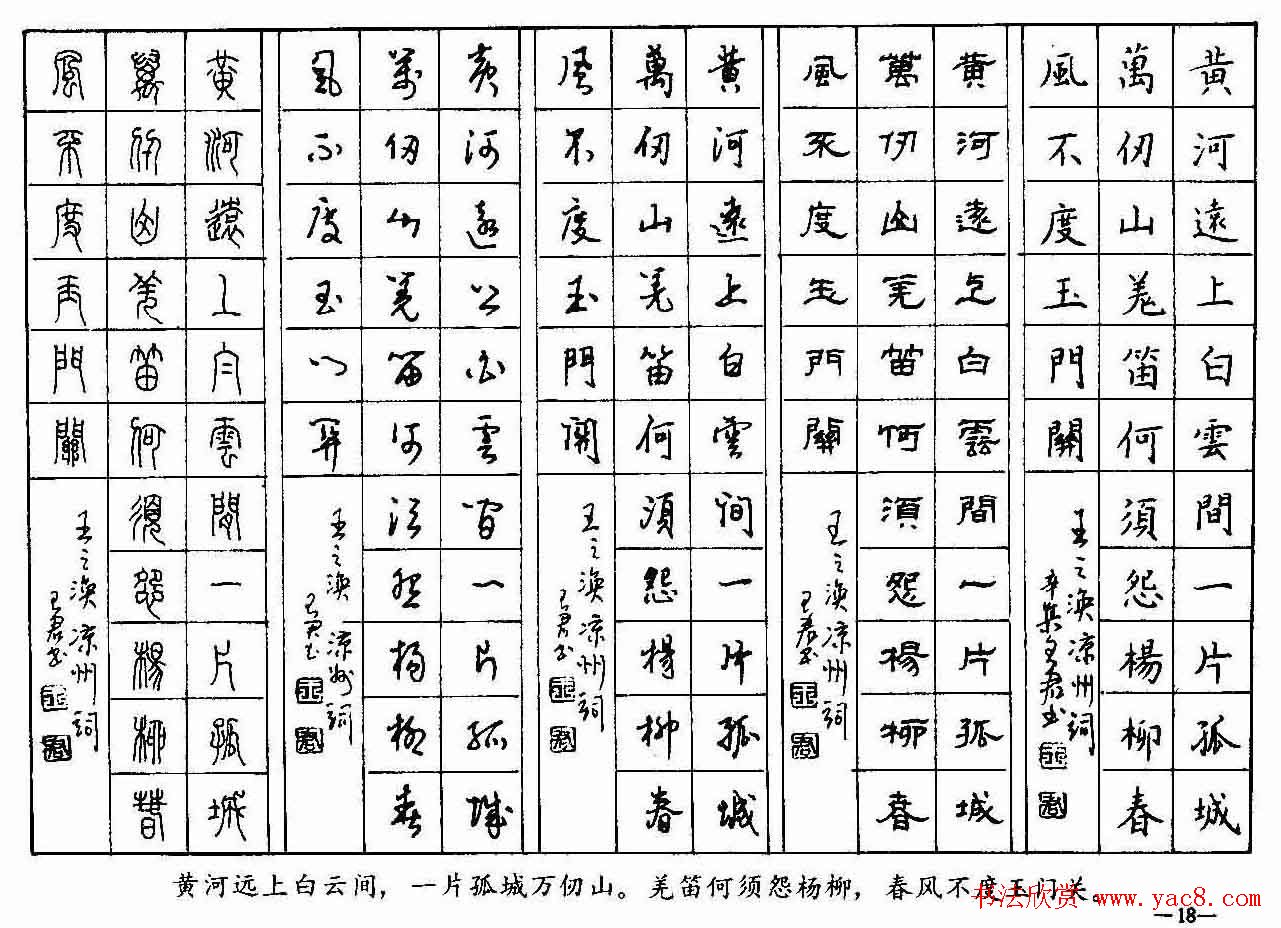 黄河遠上白雲間一片孤城
萬仞山羌笛何須怨楊柳春
風不度玉門關
王之渙凉州詞
辛集王君书
黄河遠上白雲間一片孤城
萬仞山羌笛何須怨楊柳春
風不度玉門關
王之渙凉州詞
王君书
黄河遠上白雲間一片孤城
萬仞山羌笛何須怨楊柳春
風不度玉門關
王之渙凉州詞
王君书
黄河遠上白雲間一片孤城
萬仞山羌笛何須怨楊柳春
風不度玉門關
王之渙凉州詞
王君书
黄河遠上白雲間一片孤城
萬仞山羌笛何須怨楊柳春
風不度玉門關
王之渙凉州詞
王君书
黄河远上白云间，一片孤城万仞山。羌笛何须怨杨柳，春风不度玉门关。
书法欣赏 www.yac8.com
—18—